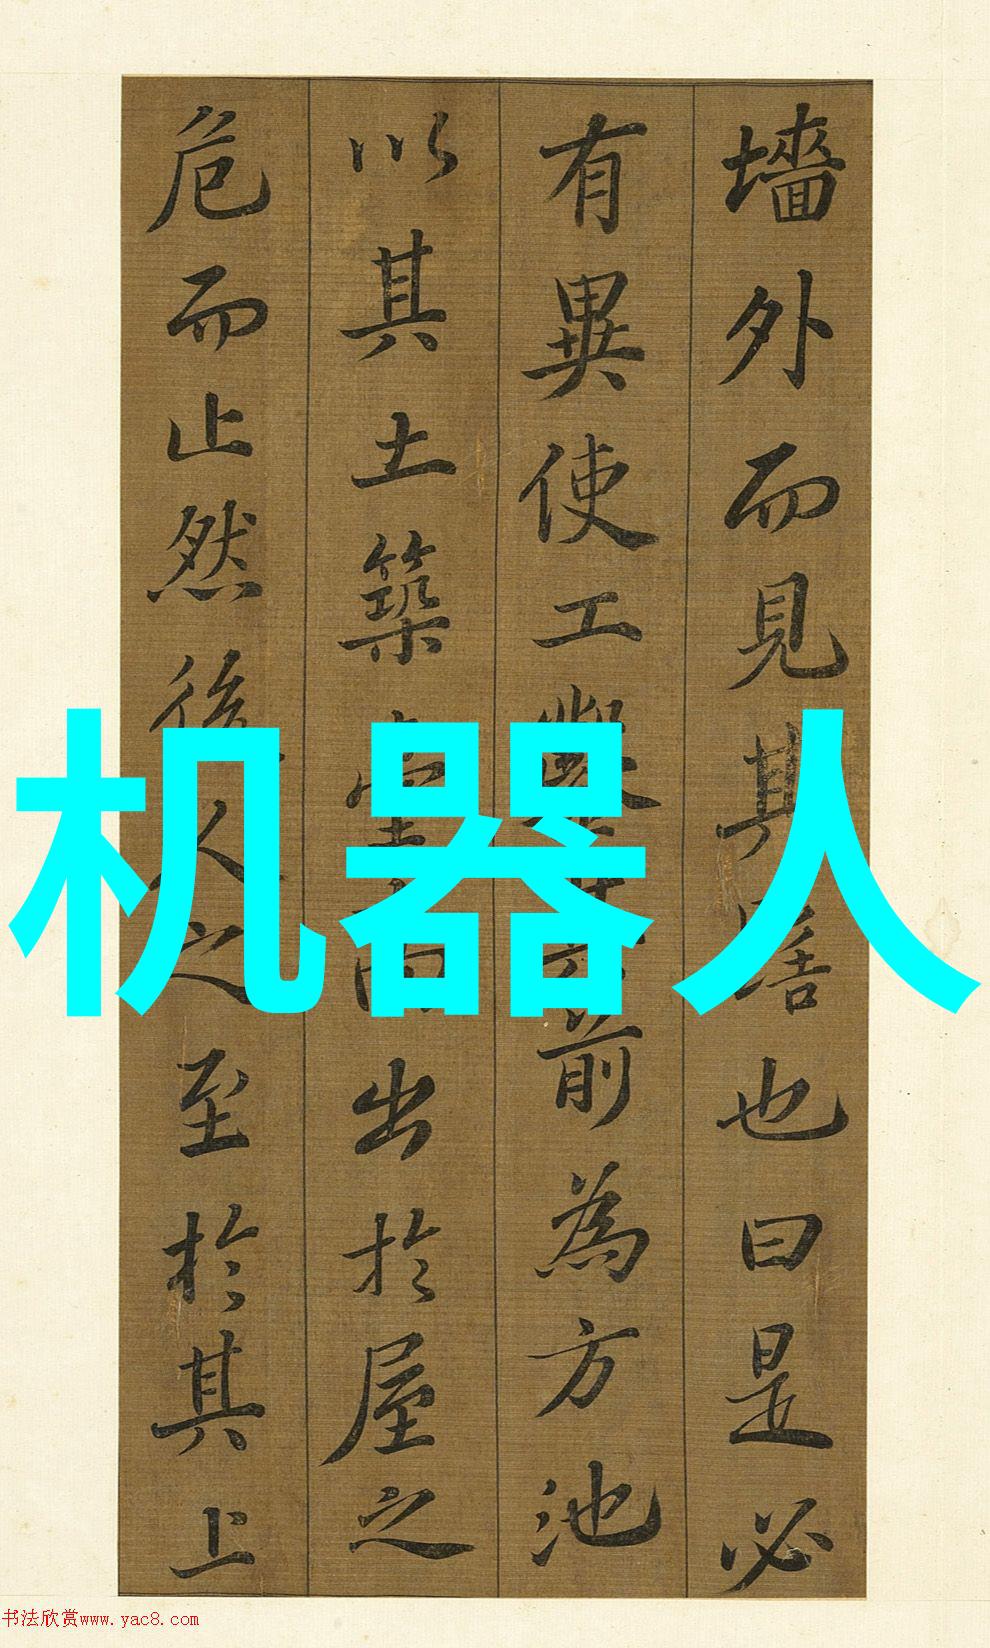 墻外而見其髻也曰是必
有異使工鑿其前為方池
以其土築臺高出於屋之
危而止然後人之至於其上
机器人
书法欣赏www.yac8.com